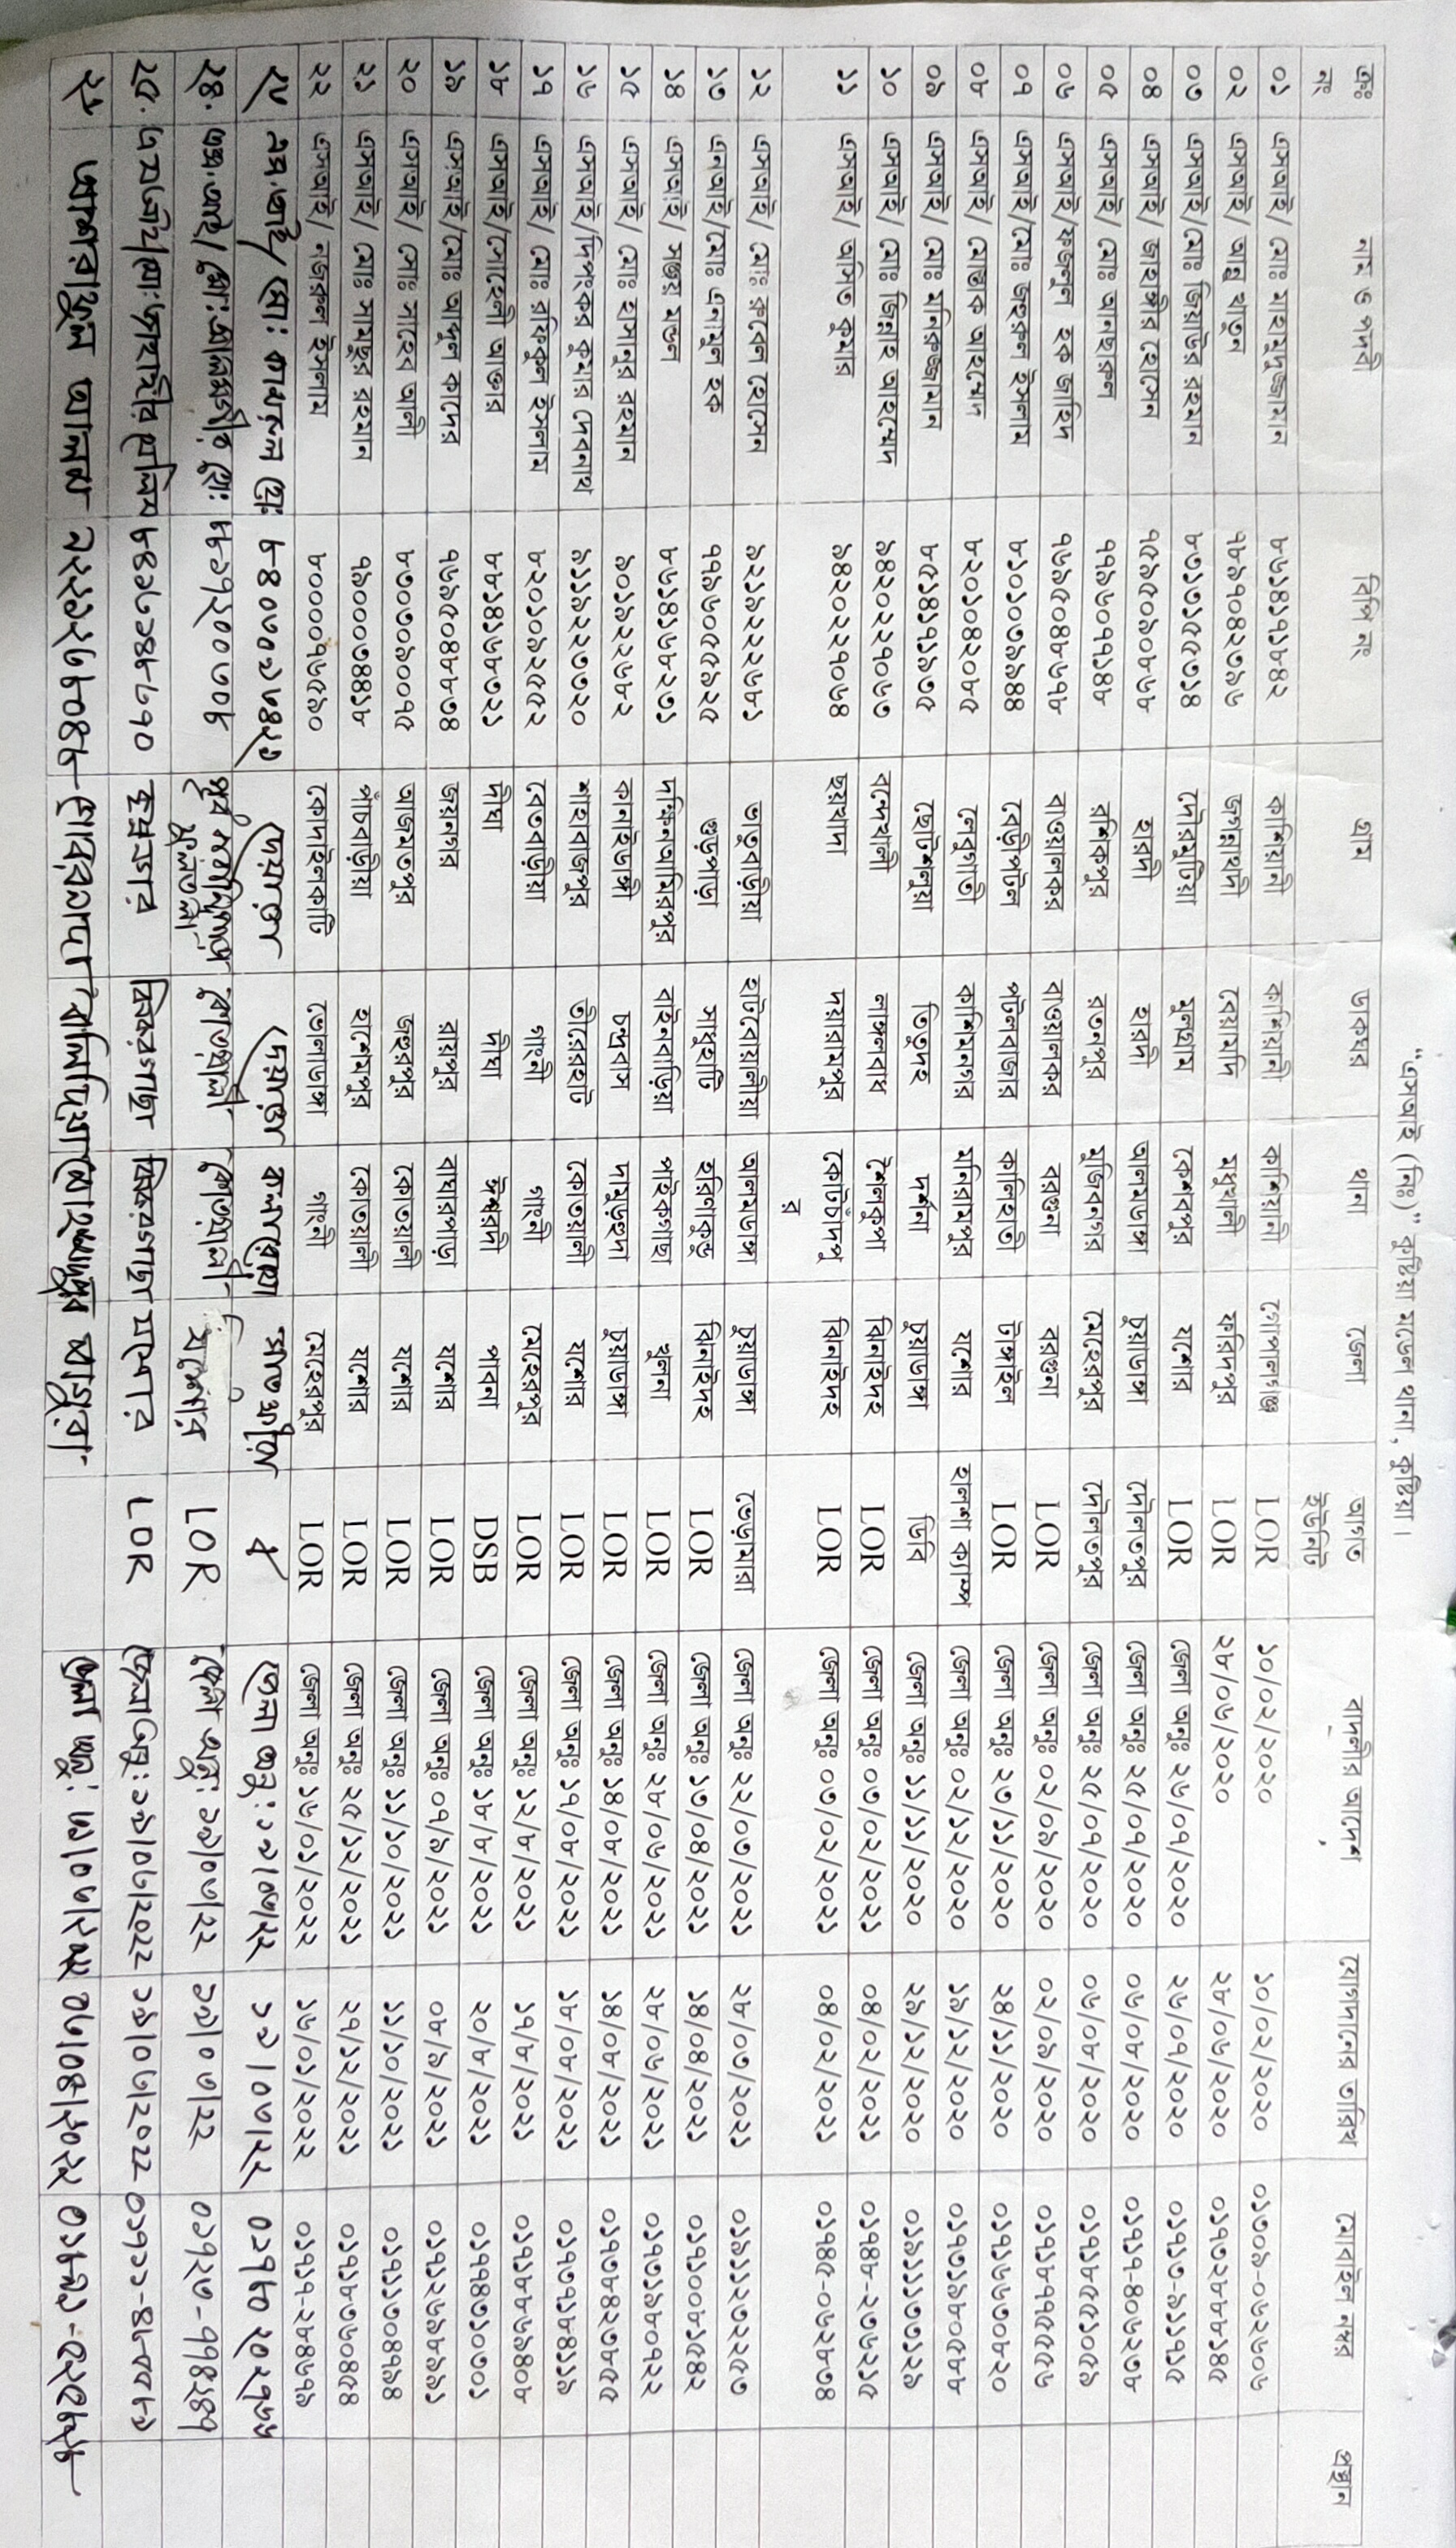 “এসআই (নিঃ)” কুষ্টিয়া মডেল থানা, কুষ্টিয়া।
ক্রঃ নং নাম ও পদবী বিপি নং গ্রাম ডাকঘর থানা জেলা আগত ইউনিট বদলীর আদেশ যোগদানের তারিখ মোবাইল নম্বর প্রস্থান
০১ এসআই/ মোঃ মাহমুদুজ্জামান ৮৬১৪১৭১৮৪২ কাশিয়ানী কাশিয়ানী কাশিয়ানি গোপালগঞ্জ LOR ১০/০২/২০২০ ১০/০২/২০২০ ০১৩০৯-০৬২৬০৬
০২ এসআই/ আন্না খাতুন ৭৮৯৭০৪২৩৯৬ জগন্নাথদী বেয়ামদি মধুখালী ফরিদপুর LOR ২৮/০৬/২০২০ ২৮/০৬/২০২০ ০১৭৩২৮৮৮১৪৫
০৩ এসআই/মোঃ জিয়াউর রহমান ৮৩১৩১৫৫৩১৪ গৌরমুটিয়া মুলগ্রাম কেশবপুর যশোর LOR জেলা অনুঃ ২৬/০৭/২০২০ ২৬/০৭/২০২০ ০১৭১৩-৯১১৭১৫
০৪ এসআই/ জাহাঙ্গীর হোসেন ৭৫৯৫০৯০৮৬৮ হারদী হারদী আলমডাঙ্গা চুয়াডাঙ্গা দৌলতপুর জেলা অনুঃ ২৫/০৭/২০২০ ০৬/০৮/২০২০ ০১৭১৭-৪০৬২৩৮
০৫ এসআই/ মোঃ আনছারুল ৭৭৯৬০৭৭১৪৮ রশিকপুর রতনপুর মুজিবনগর মেহেরপুর দৌলতপুর জেলা অনুঃ ২৫/০৭/২০২০ ০৬/০৮/২০২০ ০১৭১৮৫৫১০৫৯
০৬ এসআই/ফজলুল হক জাহিদ ৭৬৯৫০৪৮৬৭৮ বাওয়ালকর বাওয়ালকর বরগুনা বরগুনা LOR জেলা অনুঃ ০২/০৯/২০২০ ০২/০৯/২০২০ ০১৭১৮৭৭৫৫৫৬
০৭ এসআই/মোঃ জহুরুল ইসলাম ৮১০১০৩৯৯৪৪ বেড়ীপটল পটলবাজার কালিহাতী টাঙ্গাইল LOR জেলা অনুঃ ২৩/১১/২০২০ ২৪/১১/২০২০ ০১৭১৬৬৩০৮২০
০৮ এসআই/ মোস্তাক আহম্মেদ ৮২০১০৪২০৮৫ লেবুগাতী কাশিমনগর মনিরামপুর যশোর হালশা ক্যাম্প জেলা অনুঃ ০২/১২/২০২০ ১৯/১২/২০২০ ০১৭৩১৯৮০৫৮৮
০৯ এসআই/ মোঃ মনিরুজ্জামান ৮৫১৪১৭১৯৩৫ ছোটশলুয়া তিতুদহ দর্শনা চুয়াডাঙ্গা ডিবি জেলা অনুঃ ১১/১১/২০২০ ২৯/১২/২০২০ ০১৯১১১৩৩১২৯
১০ এসআই/ মোঃ জিন্নাহ আহম্মেদ ৯৪২০২২৭০৬৩ বন্দেখালী লাঙ্গলবাধ শৈলকুপা ঝিনাইদহ LOR জেলা অনুঃ ০৩/০২/২০২১ ০৪/০২/২০২১ ০১৭৪৮-২৩৬২১৫
১১ এসআই/ অমিত কুমার ৯৪২০২২৭০৬৪ ছয়খাদা দয়ারামপুর কোটচাঁদপুর ঝিনাইদহ LOR জেলা অনুঃ ০৩/০২/২০২১ ০৪/০২/২০২১ ০১৭৪৫-০৬২৮৩৪
১২ এসআই/ মোঃ রুবেল হোসেন ৯২১৯২২২৬৮১ ভাতুবাড়ীয়া হাটবোয়ালীয়া আলমডাঙ্গা চুয়াডাঙ্গা ভেড়ামারা জেলা অনুঃ ২২/০৩/২০২১ ২৮/০৩/২০২১ ০১৯১১২৩২২৫৩
১৩ এসআই/মোঃ এনামুল হক ৭৭৯৬০৫৫৯২৫ শুড়পাড়া সাধুহাটি হরিণাকুন্ডু ঝিনাইদহ LOR জেলা অনুঃ ১৩/০৪/২০২১ ১৪/০৪/২০২১ ০১৭১০০৮১৫৪২
১৪ এসআই/ সঞ্জয় মণ্ডল ৮৬১৪১৬৮২৭১ দক্ষিনআমিরপুর বাইনবাড়িয়া পাইকগাছা খুলনা LOR জেলা অনুঃ ২৮/০৬/২০২১ ২৮/০৬/২০২১ ০১৭৩১৯৮০৭২২
১৫ এসআই/ মোঃ হাসানুর রহমান ৯০১৯২২৬৮২ কানাইডাঙ্গী চন্দ্রবাস দামুড়হুদা চুয়াডাঙ্গা LOR জেলা অনুঃ ১৪/০৮/২০২১ ১৪/০৮/২০২১ ০১৭৩৮৪২৩৮৫৫
১৬ এসআই/দিপংকর কুমার দেবনাথ ৯১১৯২২৩৩২০ শাহাবাজপুর তীরেরহাট কোতয়ালী যশোর LOR জেলা অনুঃ ১৭/০৮/২০২১ ১৮/০৮/২০২১ ০১৭৩৭১৮৪১১৯
১৭ এসআই/ মোঃ রফিকুল ইসলাম ৮২০১০৯২৫৫২ বেতবাড়ীয়া গাংনী গাংনী মেহেরপুর LOR জেলা অনুঃ ১২/৮/২০২১ ১৭/৮/২০২১ ০১৭১৮৮৬৯৪০৮
১৮ এসআই/সোহেলী আক্তার ৮৮১৪১৬৮৩২১ দীঘা দীঘা ঈশ্বরদী পাবনা DSB জেলা অনুঃ ১৮/৮/২০২১ ২০/৮/২০২১ ০১৭৭৪৩১০৩০১
১৯ এসআই/মোঃ আব্দুল কাদের ৭৬৯৫০৪৮৮৩৪ জয়নগর রায়পুর বাঘারপাড়া যশোর LOR জেলা অনুঃ ০৭/৯/২০২১ ০৮/৯/২০২১ ০১৭১২৬৯৮৯৯১
২০ এসআই/ মোঃ সাহেব আলী ৮৩০৩০৯০০৭৫ আজমতপুর জহুরপুর কোতয়ালী যশোর LOR জেলা অনুঃ ১১/১০/২০২১ ১১/১০/২০২১ ০১৭১১৩০৪৭৯৪
২১ এসআই/ মোঃ সামছুর রহমান ৭৯০০০৩৪৪১৮ পাঁচবাড়ীয়া হাশেমপুর কোতয়ালী যশোর LOR জেলা অনুঃ ২৫/১২/২০২১ ২৭/১২/২০২১ ০১৭১৮৩৬০৪৫৪
২২ এসআই/ নজরুল ইসলাম ৮০০০০৭৬৫৯০ কোদাইলকাটি ভোলাডাঙ্গা গাংনী মেহেরপুর LOR জেলা অনুঃ ১৬/০১/২০২২ ১৬/০১/২০২২ ০১৭১৭-২৮৪৬৭৯
এস.আই/ মো: কামরুল ৮৪০৩০১৬৪২১ দেয়াড়া দেয়াড়া কলারোয়া সাতক্ষীরা জেলা অনু: ১১/০৩/২২ ১১/০৩/২২ ০১৭৮০২০২৭৬৬
২৪. এস.আই/ মো:আলমগীর হো: ৭৮১৭২০০৩০৮ কোতয়ালী কোতয়ালী যশোর LOR জেলা অনু: ১১/০৩/২২ ১১/০৩/২২ ০১৭২৩-৭৭৪২৪৭
২৫. এসআই/মো:জাহাঙ্গীর হালিম ৮৪১৬১৪৮৬৭০ কৃষ্ণনগর ঝিকরগাছা ঝিকরগাছা যশোর LOR জেলা অনু: ১৯/০৬/২০২২ ১৯/০৬/২০২২
আকরামুল আলম মাগুরা